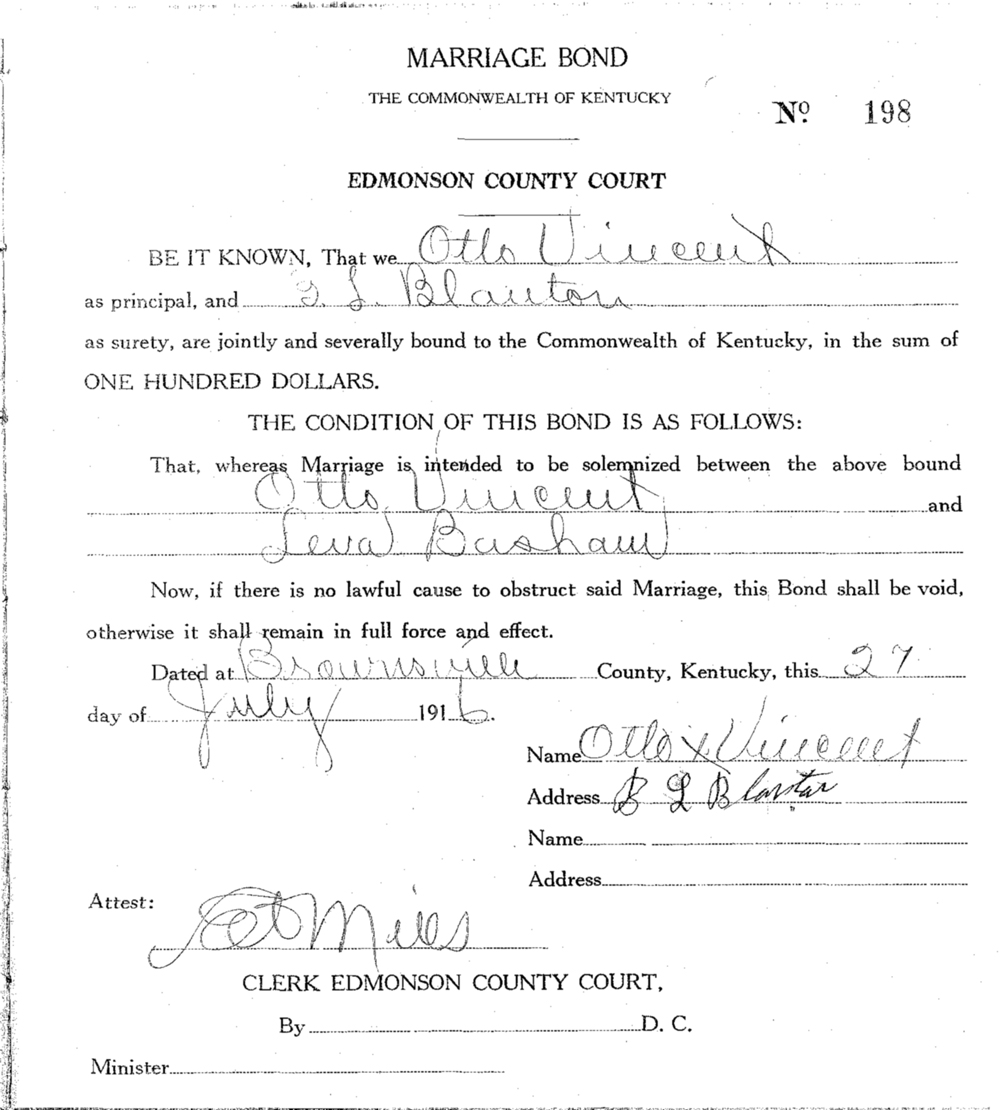 MARRIAGE BOND
THE COMMONWEALTH OF KENTUCKY
Nº 198
EDMONSON COUNTY COURT
BE IT KNOWN, That we Otto Vincent
as principal, and L. Blanton
as surety, are jointly and severally bound to the Commonwealth of Kentucky, in the sum of
ONE HUNDRED DOLLARS.
THE CONDITION OF THIS BOND IS AS FOLLOWS:
That, whereas Marriage is intended to be solemnized between the above bound
Otto Vincent and
Leva Basham
Now, if there is no lawful cause to obstruct said Marriage, this Bond shall be void,
otherwise it shall remain in full force and effect.
Dated at Brownsville County, Kentucky, this 27
day of July 1916.
Name Otto x Vincent
Address B L Blanton
Name
Address
Attest:
Miles
CLERK EDMONSON COUNTY COURT,
By D. C.
Minister